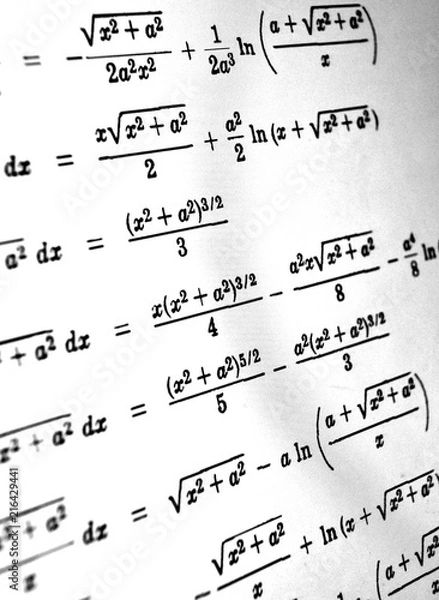 = -\frac{\sqrt{x^2+a^2}}{2a^2x^2} + \frac{1}{2a^3} \ln \left( \frac{a+\sqrt{x^2+a^2}}{x} \right)
dx = \frac{x\sqrt{x^2+a^2}}{2} + \frac{a^2}{2} \ln (x + \sqrt{x^2+a^2})
a^2 dx = \frac{(x^2+a^2)^{3/2}}{3}
+ a^2 dx = \frac{x(x^2+a^2)^{3/2}}{4} - \frac{a^2x\sqrt{x^2+a^2}}{8} - \frac{a^4}{8} \ln
x^2 + a^2 dx = \frac{(x^2+a^2)^{5/2}}{5} - \frac{a^2(x^2+a^2)^{3/2}}{3}
+ a^2 dx = \sqrt{x^2+a^2} - a \ln \left( \frac{a+\sqrt{x^2+a^2}}{x} \right)
x
-\frac{\sqrt{x^2+a^2}}{x} + \ln (x + \sqrt{x^2+a^2})
(a + \sqrt{x^2
x
Adobe Stock | #216429441